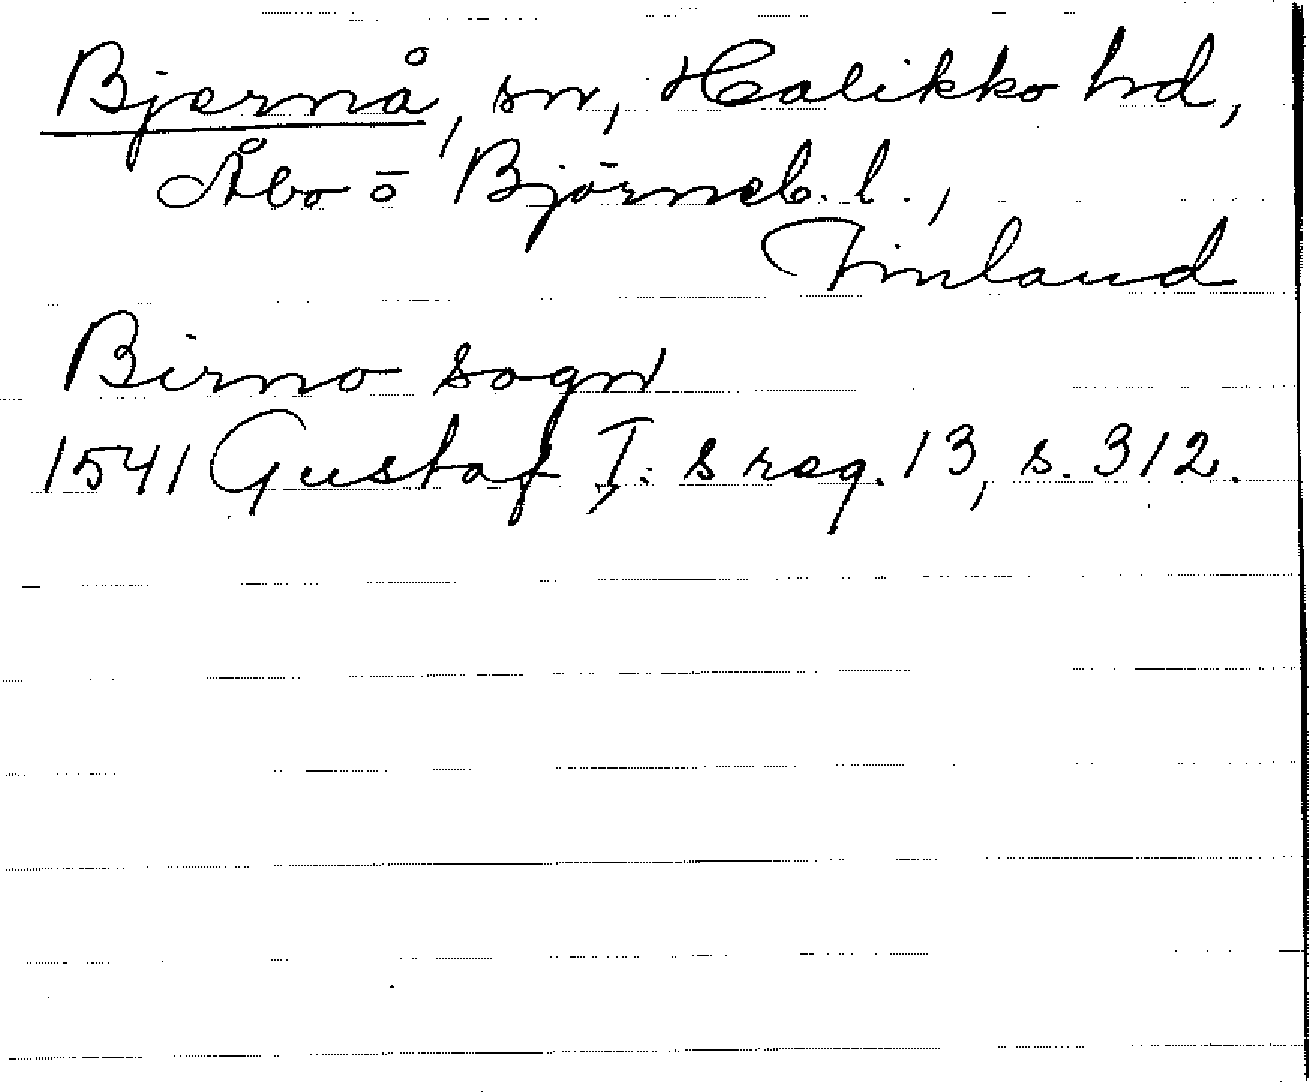 Bjernå, sn, Halikko hd,
Åbo o Björneb. l.,
Finland
Birno sogn
1541 Gustaf I:s reg. 13, s. 312.